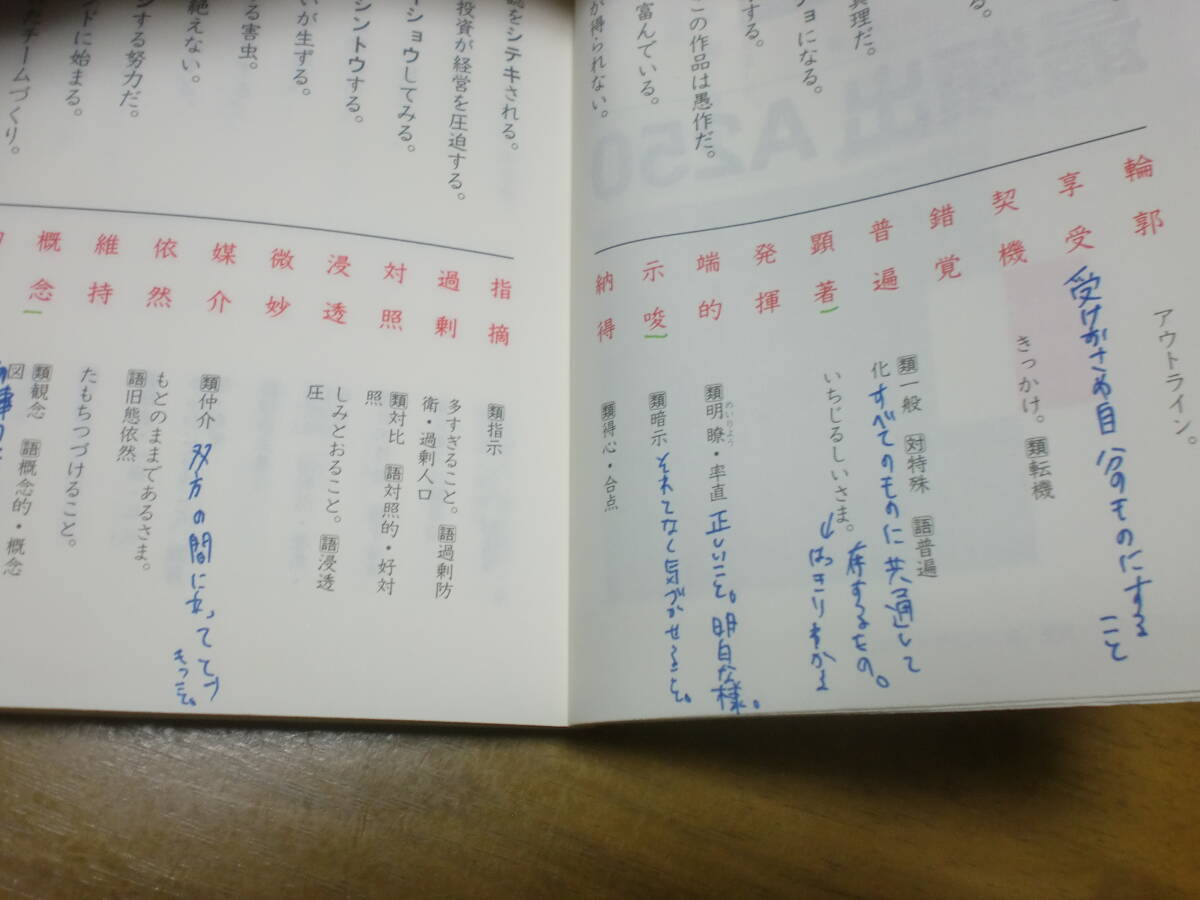 る。
真理だ。
チョになる。
する。
この作品は愚作だ。
富んでいる。
が得られない。
最頻出 A250
輪郭
アウトライン。
享受
受けがさめ自分のものにすること
契機
きっかけ。 類転機
錯覚
普遍
類一般 対特殊 語普遍
化
すべてのものに共通して
存するもの。
顕著
いちじるしいさま。
はっきりわかる
発揮
端的
類明瞭・率直
めいりょう
正しいこと。明白な様。
示唆
類暗示
それとなく気づかせること。
納得
類得心・合点
認をシテキされる。
投資が経営を圧迫する。
ーショウしてみる。
シントウする。
いが生ずる。
る害虫。
絶えない。
ンする努力だ。
ンドに始まる。
たチームづくり。
指摘
類指示
過剰
多すぎること。 語過剰防
衛・過剰人口
対照
類対比 語対照的・好対
照
浸透
しみとおること。 語浸透
圧
微妙
媒介
類仲介
双方の間に立ってとり
もつこと。
依然
もとのままであるさま。
語旧態依然
維持
たもちつづけること。
概念
類観念 語概念的・概念
図